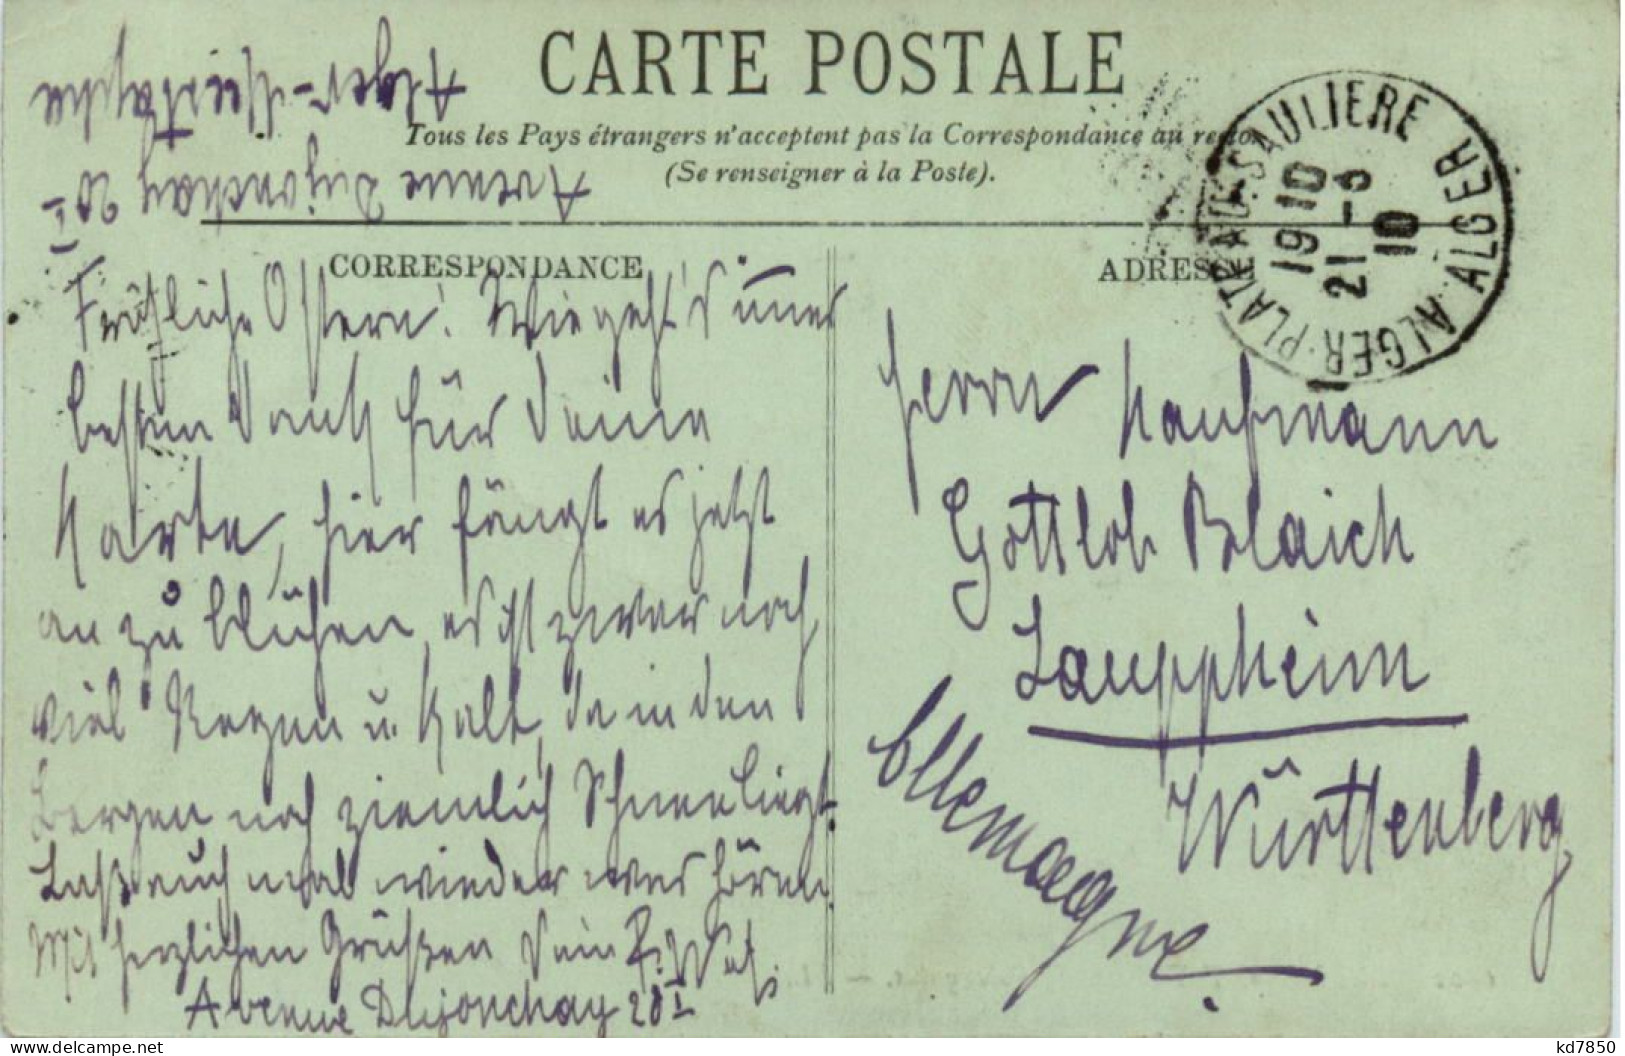 CARTE POSTALE
Tous les Pays étrangers n'acceptent pas la Correspondance au recto
(Se renseigner à la Poste).
Alger-Mustapha
Avenue Dujonchay 20 I
ALGER-PLATEAU-SAULIERE ALGER
19 10
21 -3
10
CORRESPONDANCE
Fröhliche Ostern! Wie geht's immer
besten Dank für Deine
Karte, hier fängt es jetzt
an zu blühen, es ist zwar noch
viel Regen u. Kalt, da in den
Bergen noch ziemlich Schnee liegt.
Laß auch mal wieder was hören.
Mit herzlichen Grüßen Dein
Avenue Dujonchay 20 I
ADRESSE
Herrn Kaufmann
Gottlob Blaich
Laupheim
Württemberg
Allemagne
kd7850